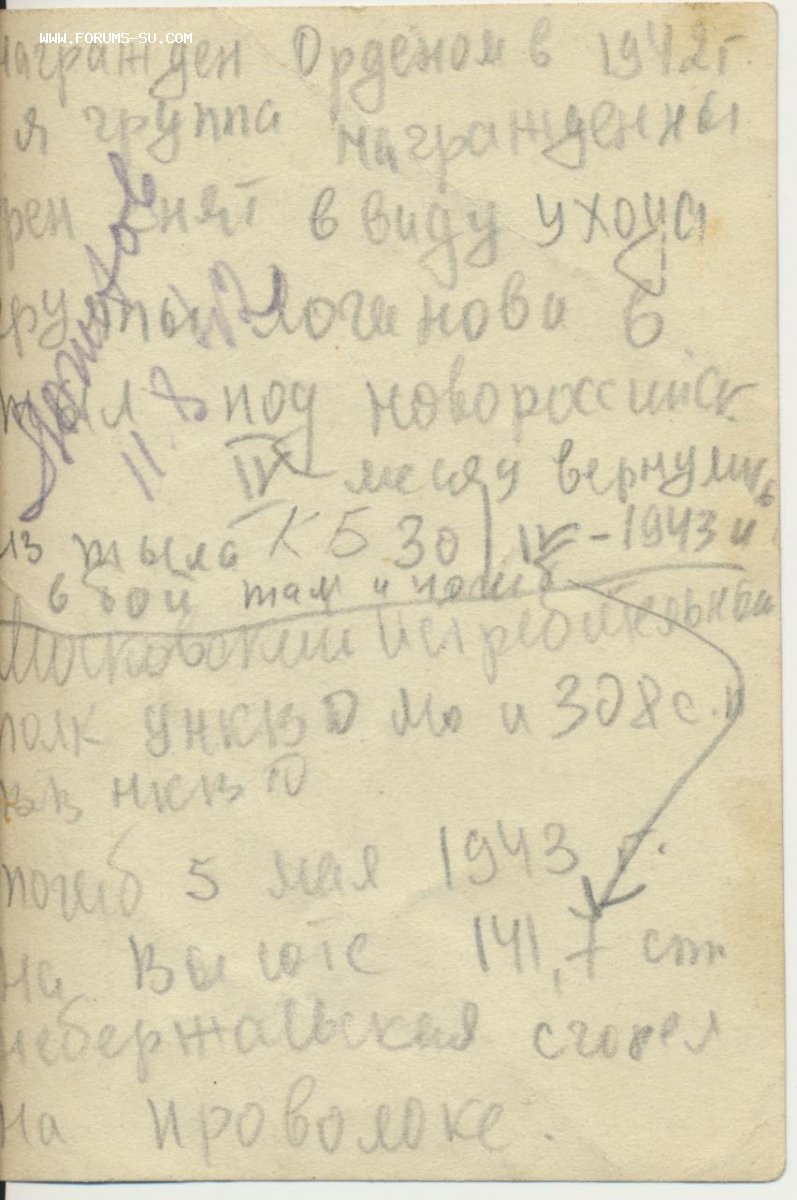 WWW.FORUMS-SU.COM
награжден Орденом в 1942 г.
я группа награжденны
рен снят в виду ухода
группы Логинова в
тыл под новороссийск
IV месяц вернулись
из тыла К Б 30 IV - 1943 и
в бой там и погиб
Московский Истребительный
полк УНКВД МО и 308 с.п
ВВ НКВД
погиб 5 мая 1943 г.
на Высоте 141,7 ст
небержаевская сгорел
на проволоке.
11 X 42